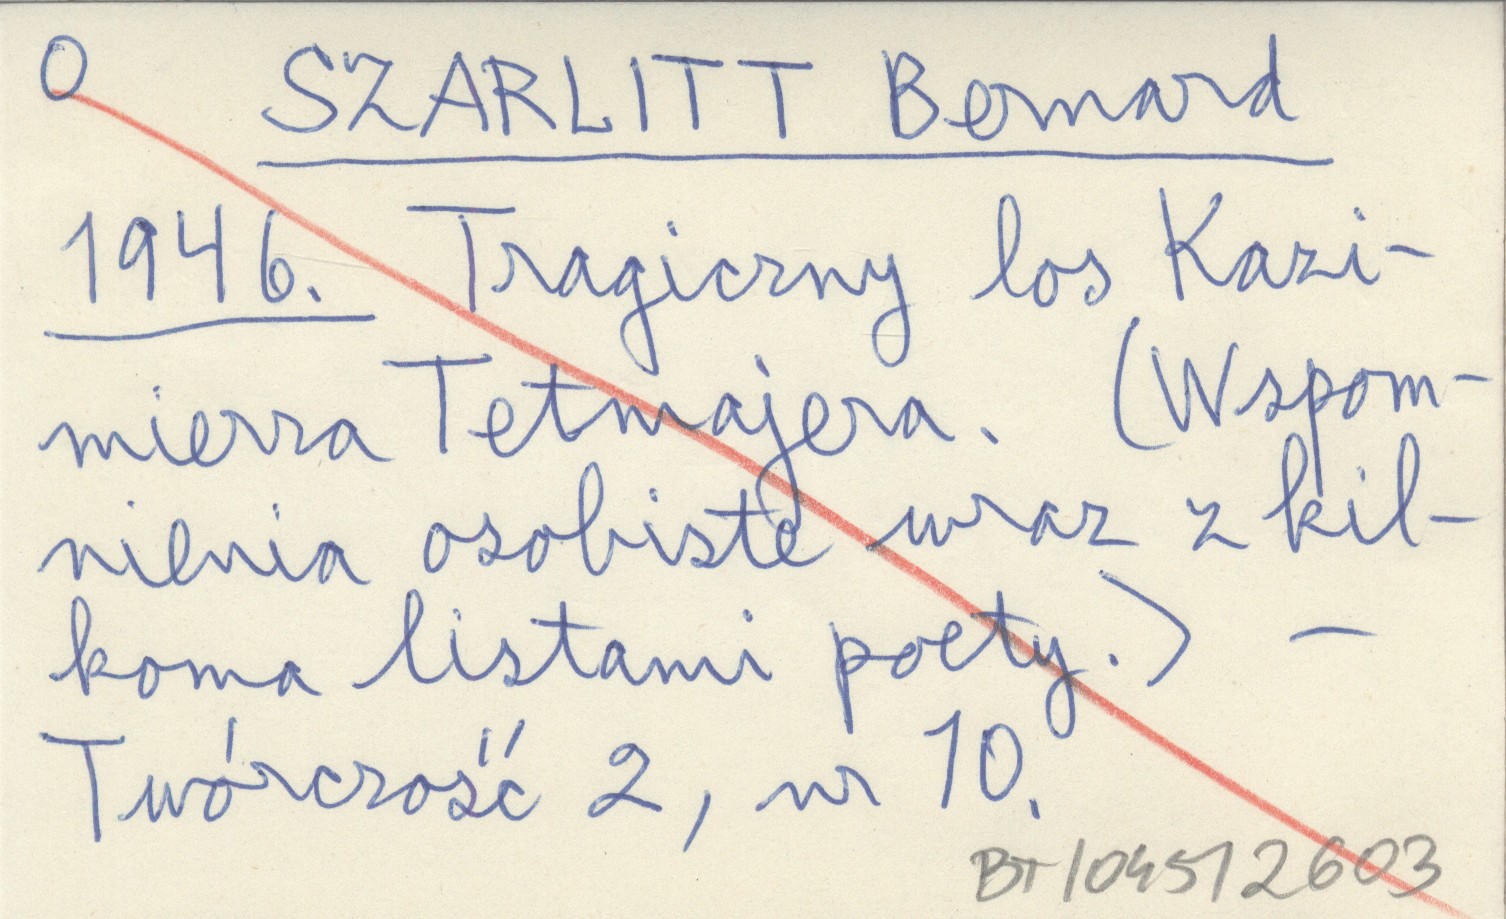 O SZARLITT Bernard
1946. Tragiczny los Kazi-
mierza Tetmajera. (Wspom-
nienia osobiste wraz z kil-
koma listami poety.) —
Twórczość 2, nr 10.
BT/04512603